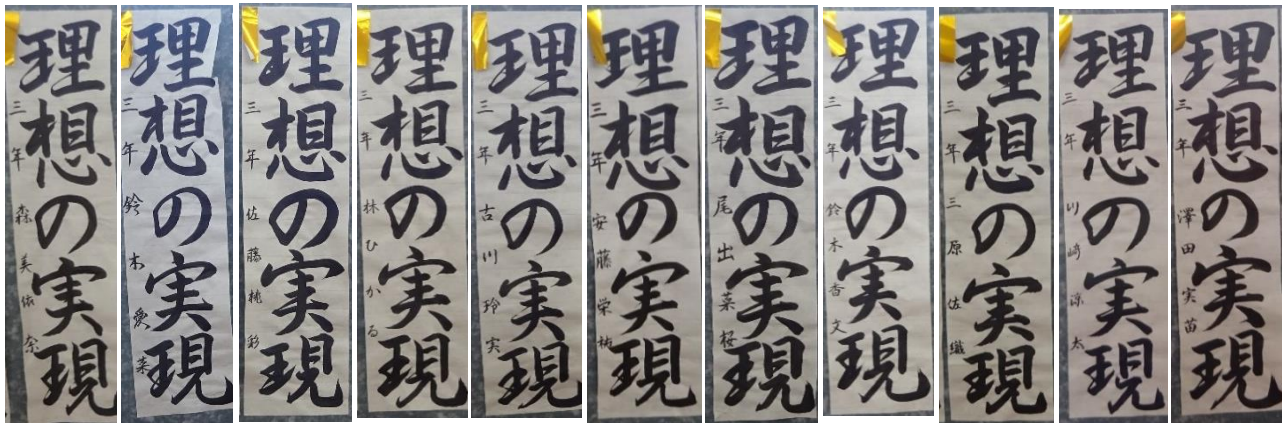 理想の実現
三年 森美依奈
理想の実現
三年 鈴木愛菜
理想の実現
三年 佐藤桃彩
理想の実現
三年 林ひかる
理想の実現
三年 古川玲実
理想の実現
三年 安藤栄祐
理想の実現
三年 尾出菜桜
理想の実現
三年 鈴木香文
理想の実現
三年 三原佐織
理想の実現
三年 川崎涼太
理想の実現
三年 澤田実苗